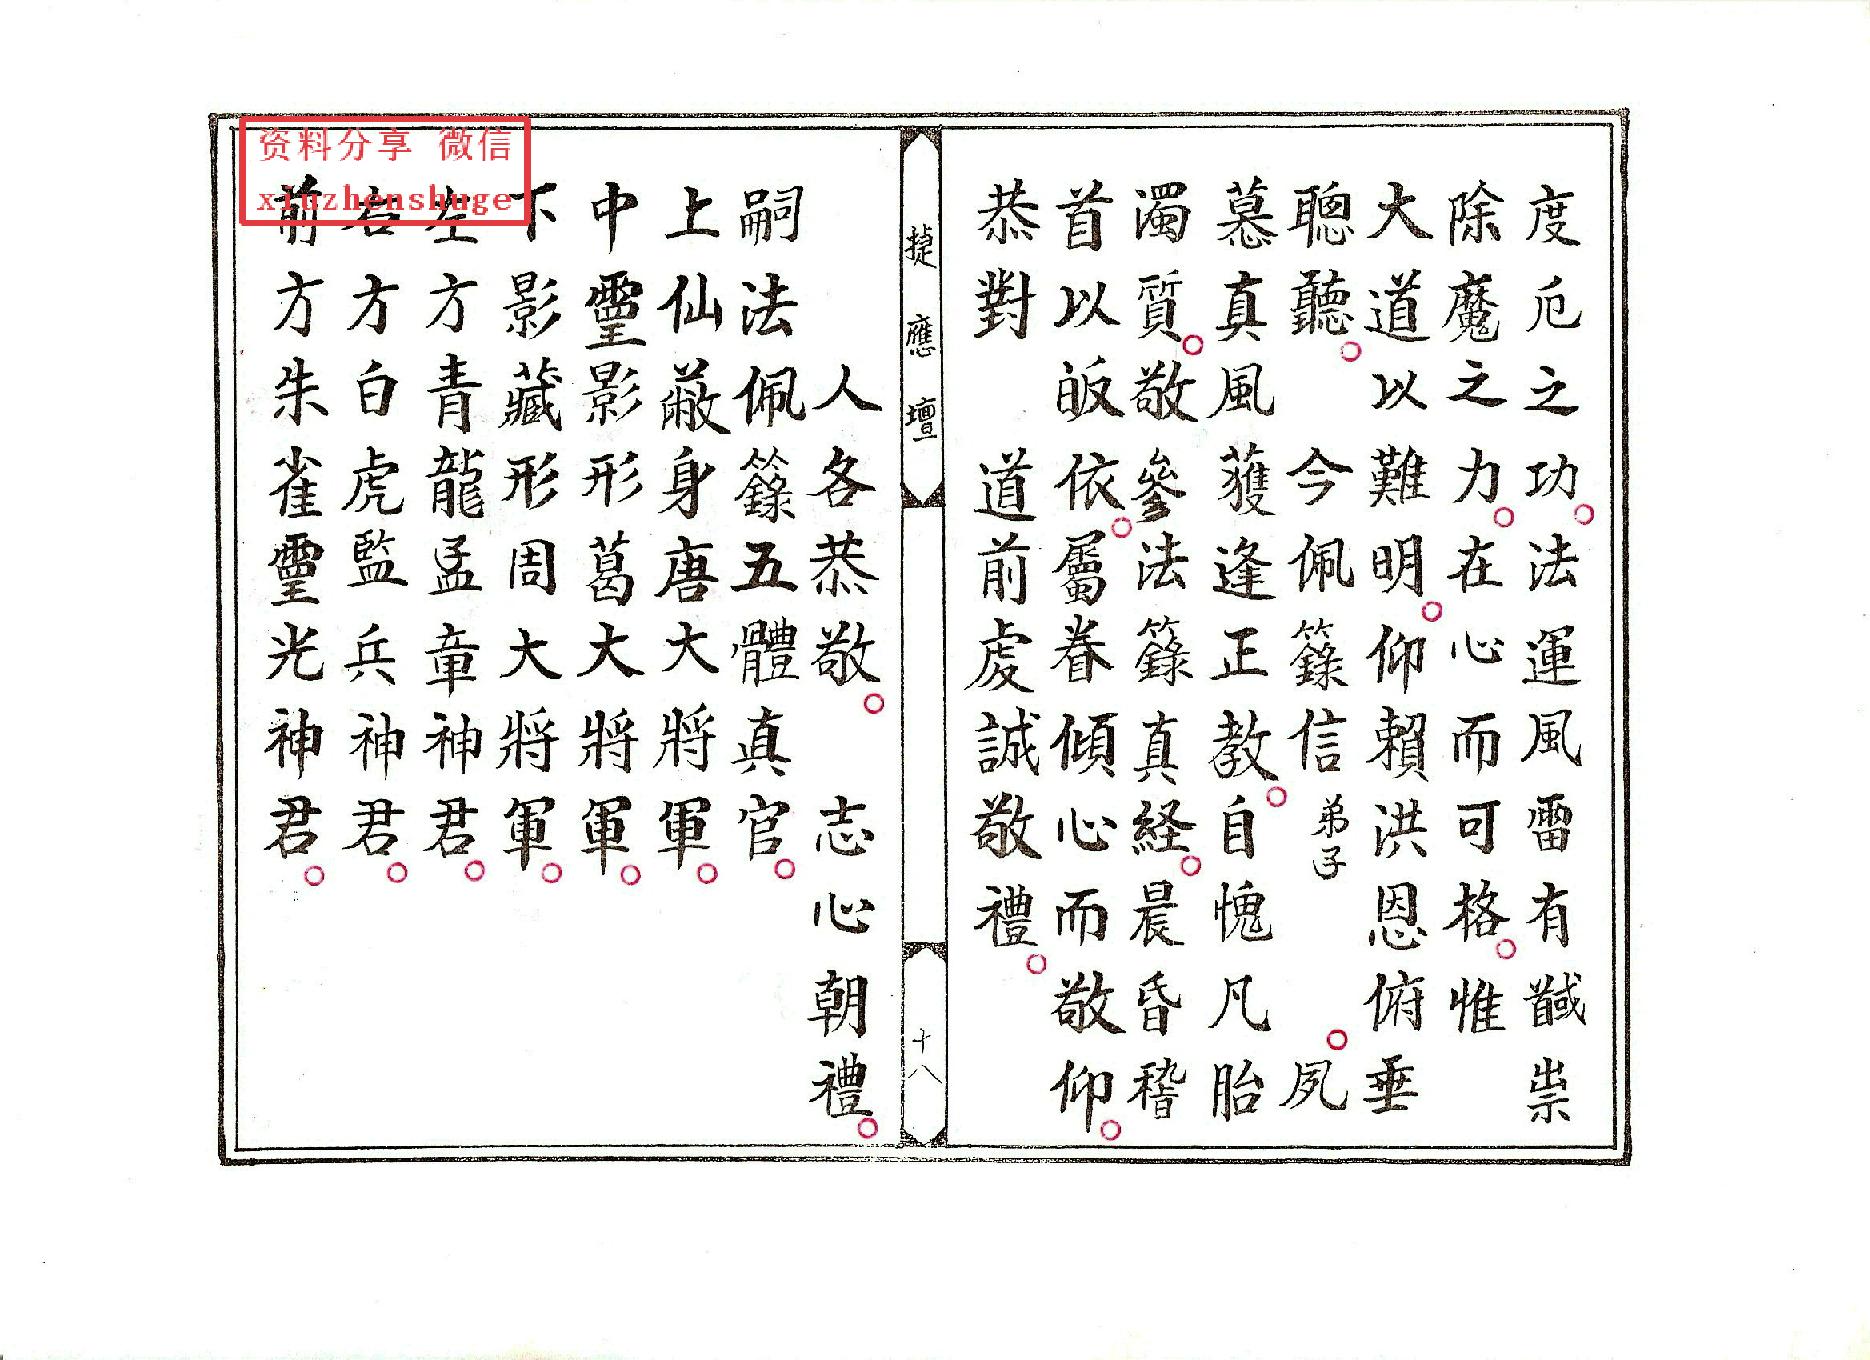 度厄之功○法運風雷有馘祟
除魔之力○在心而可格○惟
大道以難明○仰賴洪恩俯垂
聰聽○　今佩籙信弟子　○夙
慕真風獲逢正教○自愧凡胎
濁質○敬參法籙真経○晨昏稽
首以皈依○屬眷傾心而敬仰○
恭對　道前虔誠敬禮○
捷應壇
十八
人各恭敬○　志心朝禮○
嗣法佩籙五體真官○
上仙蔽身唐大將軍○
中靈影形葛大將軍○
下影藏形周大將軍○
左方青龍孟章神君○
右方白虎監兵神君○
前方朱雀靈光神君○
资料分享 微信
xiuzhenshuge